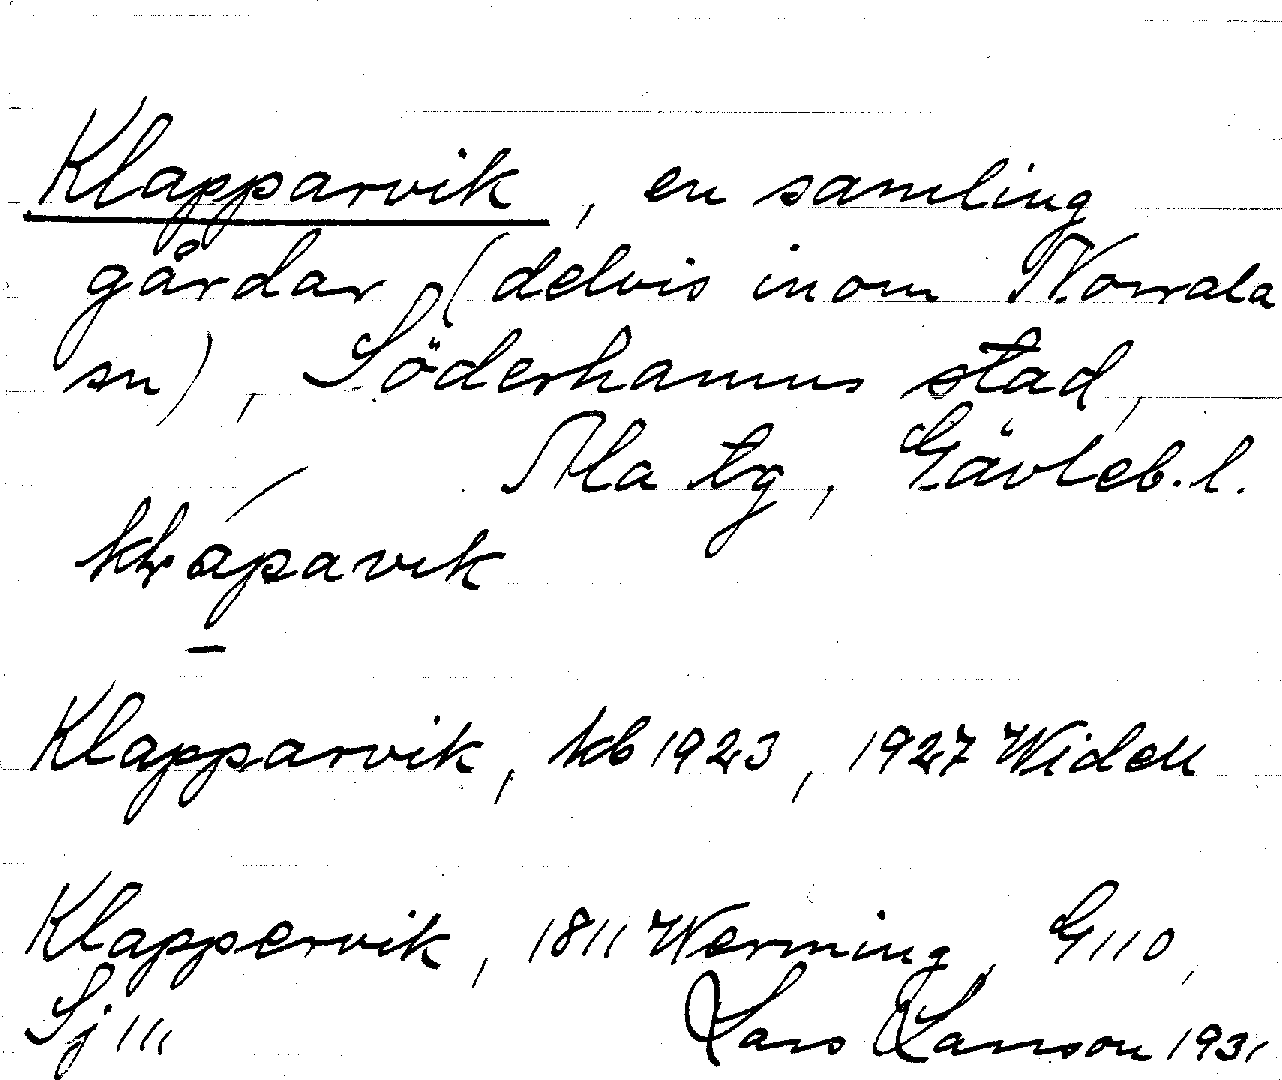 Klapparvik, en samling
gårdar (delvis inom Norrala
sn), Söderhamns stad,
Ala tg, Gävleb. l.
klápavik
Klapparvik, kb 1923, 1927 Widell
Klappervik, 1811 Werming, G110,
Sj 111 Lars Larsson 1931